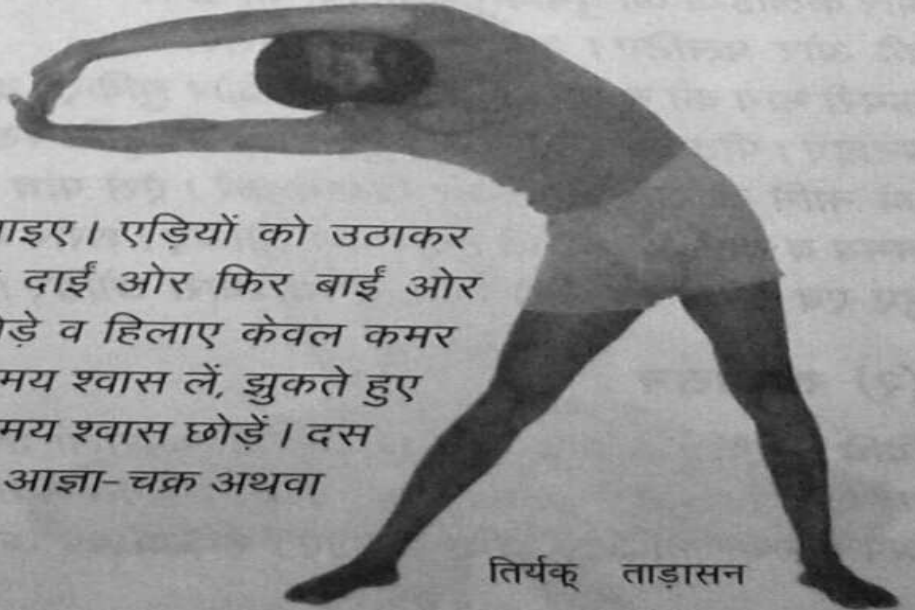 एड़ियों को उठाकर
दाईं ओर फिर बाईं ओर
व हिलाए केवल कमर
श्वास लें, झुकते हुए
श्वास छोड़ें। दस
आज्ञा-चक्र अथवा
तिर्यक् ताड़ासन